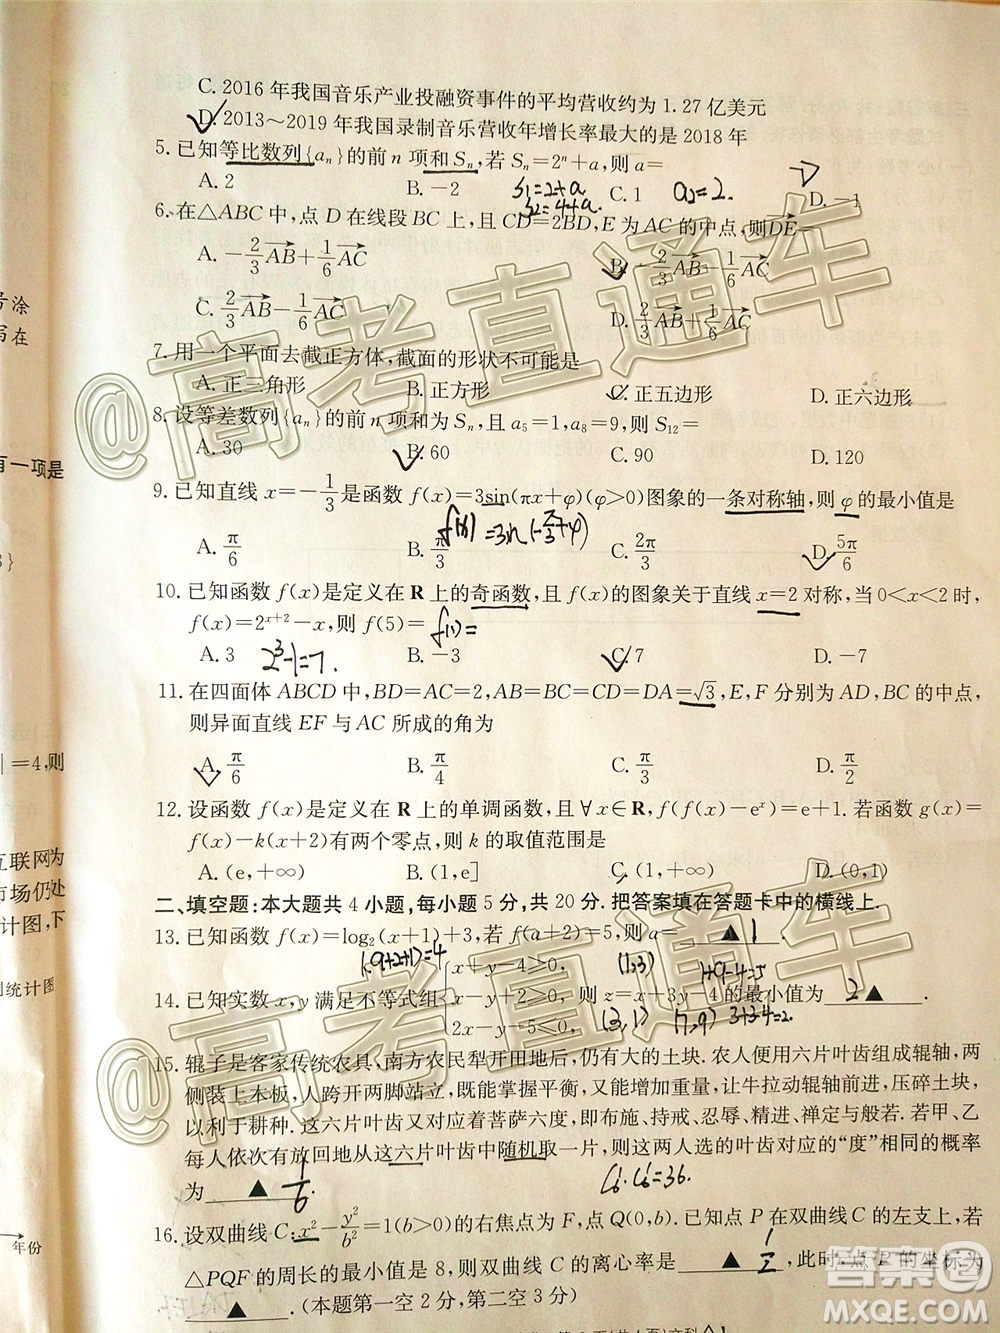 C. 2016 年我国音乐产业投融资事件的平均营收约为 1.27 亿美元
D. 2013～2019 年我国录制音乐营收年增长率最大的是 2018 年
5. 已知等比数列{aₙ}的前 n 项和 Sₙ,若 Sₙ=2ⁿ+a,则 a=
A. 2 B. −2 C. 1 D. −1
S₁=2+a
S₂=4+a.
a₂=2.
6. 在△ABC 中,点 D 在线段 BC 上,且 CD=2BD,E 为 AC 的中点,则DE=
A. −2/3 AB+1/6 AC B. −2/3 AB−1/6 AC
C. 2/3 AB−1/6 AC D. 2/3 AB+1/6 AC
7. 用一个平面去截正方体,截面的形状不可能是
A. 正三角形 B. 正方形 C. 正五边形 D. 正六边形
8. 设等差数列{aₙ}的前 n 项和为 Sₙ,且 a₅=1,a₈=9,则 S₁₂=
A. 30 B. 60 C. 90 D. 120
9. 已知直线 x=−1/3是函数 f(x)=3sin(πx+φ)(φ>0)图象的一条对称轴,则 φ 的最小值是
f(x)=3sin(−π/3+φ)
A. π/6 B. π/3 C. 2π/3 D. 5π/6
10. 已知函数 f(x)是定义在 R 上的奇函数,且 f(x)的图象关于直线 x=2 对称,当 0<x<2 时,
f(x)=2ˣ⁺²−x,则 f(5)= f(1)=
A. 3 2³−1=7. B. −3 C. 7 D. −7
11. 在四面体 ABCD 中,BD=AC=2,AB=BC=CD=DA=√3,E,F 分别为 AD,BC 的中点,
则异面直线 EF 与 AC 所成的角为
A. π/6 B. π/4 C. π/3 D. π/2
12. 设函数 f(x)是定义在 R 上的单调函数,且∀x∈R,f(f(x)−eˣ)=e+1. 若函数 g(x)=
f(x)−k(x+2)有两个零点,则 k 的取值范围是
A. (e,+∞) B. (1,e] C. (1,+∞) D. (0,1)
二、填空题:本大题共 4 小题,每小题 5 分,共 20 分. 把答案填在答题卡中的横线上.
13. 已知函数 f(x)=log₂(x+1)+3,若 f(a+2)=5,则 a= ▲ 1 .
(1,3) 1+9−4=5
14. 已知实数 x,y 满足不等式组{x+y−4≥0, 2x−y−5≤0, 则 z=x+3y−4 的最小值为 2 ▲ .
(3,1) (7,9) 3+3−4=2.
15. 辊子是客家传统农具,南方农民犁开田地后,仍有大的土块. 农人便用六片叶齿组成辊轴,两
侧装上木板,人跨开两脚站立,既能掌握平衡,又能增加重量,让牛拉动辊轴前进,压碎土块,
以利于耕种. 这六片叶齿又对应着菩萨六度,即布施、持戒、忍辱、精进、禅定与般若. 若甲、乙
每人依次有放回地从这六片叶齿中随机取一片,则这两人选的叶齿对应的“度”相同的概率
为 ▲ 1/6 .
C₆·C₆=36.
16. 设双曲线 C:x²−y²/b²=1(b>0)的右焦点为 F,点 Q(0,b). 已知点 P 在双曲线 C 的左支上,若
△PQF 的周长的最小值是 8,则双曲线 C 的离心率是 ▲ ,此时,点 P 的坐标为
▲ .(本题第一空 2 分,第二空 3 分)
号涂
写在
有一项是
3}
|=4,则
互联网为
市场仍处
计图,下
统计图
年份
@高考直通车
@高考直通车
答案圈
MXQE.COM